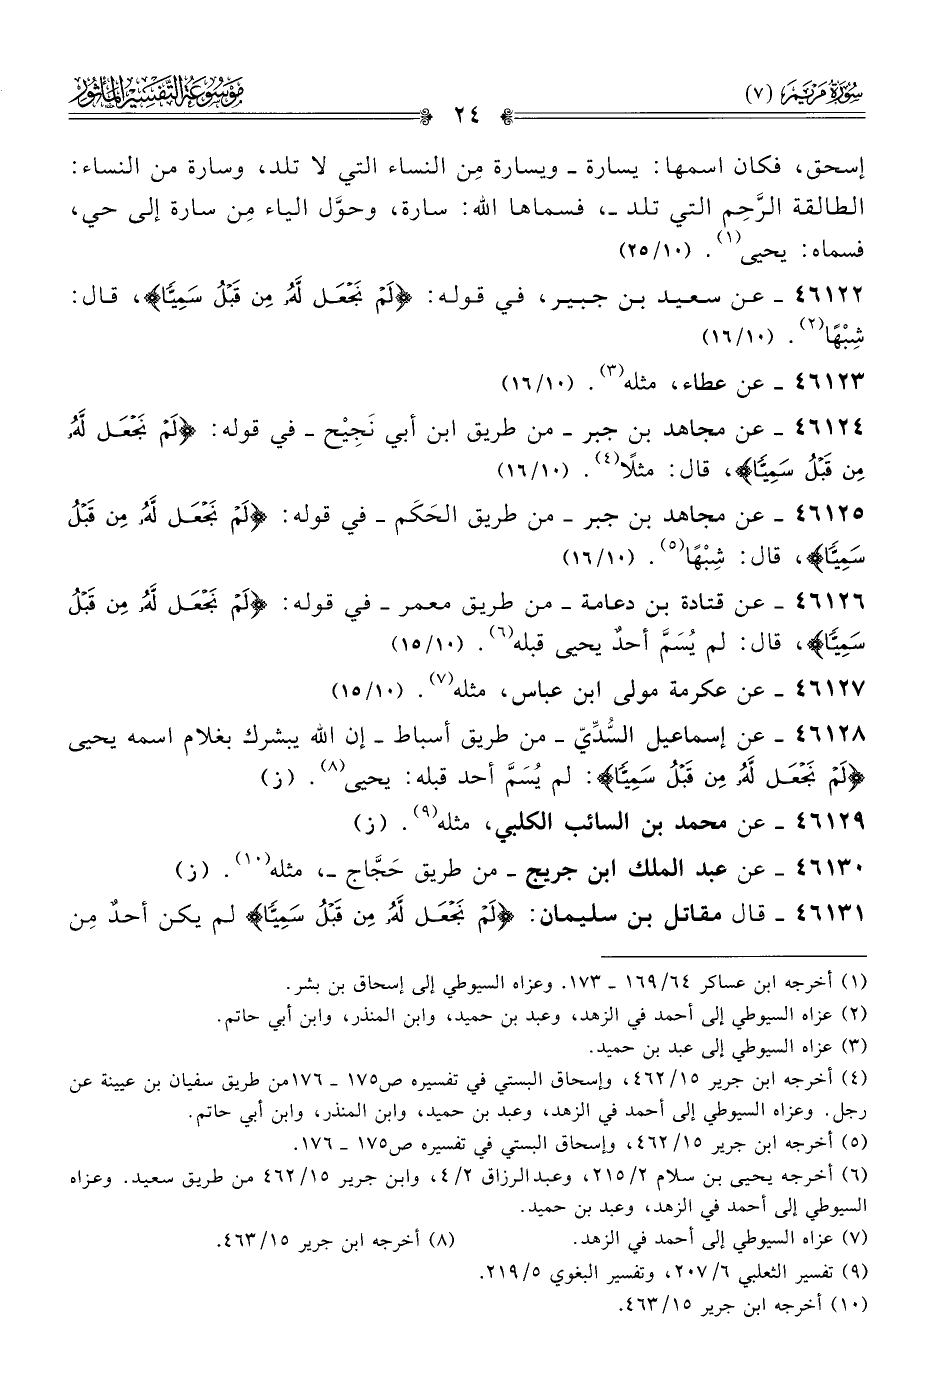 سُورَةُ مَرْيَمَ (٧)
٢٤
مَوْسُوعَةُ التَّفْسِيرِ المَأْثُور
إسحق، فكان اسمها: يسارة ـ ويسارة مِن النساء التي لا تلد، وسارة من النساء:
الطالقة الرَّحِم التي تلد ـ، فسماها الله: سارة، وحوَّل الياء مِن سارة إلى حي،
فسماه: يحيى(١). (١٠/ ٢٥)
٤٦١٢٢ ـ عن سعيد بن جبير، في قوله: ﴿لَمْ نَجْعَل لَّهُۥ مِن قَبْلُ سَمِيًّا﴾، قال:
شِبْهًا(٢). (١٠/ ١٦)
٤٦١٢٣ ـ عن عطاء، مثله(٣). (١٠/ ١٦)
٤٦١٢٤ ـ عن مجاهد بن جبر ـ من طريق ابن أبي نَجِيْح ـ في قوله: ﴿لَمْ نَجْعَل لَّهُۥ
مِن قَبْلُ سَمِيًّا﴾، قال: مثلًا(٤). (١٠/ ١٦)
٤٦١٢٥ ـ عن مجاهد بن جبر ـ من طريق الحَكَم ـ في قوله: ﴿لَمْ نَجْعَل لَّهُۥ مِن قَبْلُ
سَمِيًّا﴾، قال: شِبْهًا(٥). (١٠/ ١٦)
٤٦١٢٦ ـ عن قتادة بن دعامة ـ من طريق معمر ـ في قوله: ﴿لَمْ نَجْعَل لَّهُۥ مِن قَبْلُ
سَمِيًّا﴾، قال: لم يُسَمَّ أحدٌ يحيى قبله(٦). (١٠/ ١٥)
٤٦١٢٧ ـ عن عكرمة مولى ابن عباس، مثله(٧). (١٠/ ١٥)
٤٦١٢٨ ـ عن إسماعيل السُّدِّيّ ـ من طريق أسباط ـ إن الله يبشرك بغلام اسمه يحيى
﴿لَمْ نَجْعَل لَّهُۥ مِن قَبْلُ سَمِيًّا﴾: لم يُسَمَّ أحد قبله: يحيى(٨). (ز)
٤٦١٢٩ ـ عن محمد بن السائب الكلبي، مثله(٩). (ز)
٤٦١٣٠ ـ عن عبد الملك ابن جريج ـ من طريق حَجَّاج ـ، مثله(١٠). (ز)
٤٦١٣١ ـ قال مقاتل بن سليمان: ﴿لَمْ نَجْعَل لَّهُۥ مِن قَبْلُ سَمِيًّا﴾ لم يكن أحدٌ مِن
(١) أخرجه ابن عساكر ٦٤/ ١٦٩ ـ ١٧٣. وعزاه السيوطي إلى إسحاق بن بشر.
(٢) عزاه السيوطي إلى أحمد في الزهد، وعبد بن حميد، وابن المنذر، وابن أبي حاتم.
(٣) عزاه السيوطي إلى عبد بن حميد.
(٤) أخرجه ابن جرير ١٥/ ٤٦٢، وإسحاق البستي في تفسيره ص١٧٥ ـ ١٧٦من طريق سفيان بن عيينة عن
رجل. وعزاه السيوطي إلى أحمد في الزهد، وعبد بن حميد، وابن المنذر، وابن أبي حاتم.
(٥) أخرجه ابن جرير ١٥/ ٤٦٢، وإسحاق البستي في تفسيره ص١٧٥ ـ ١٧٦.
(٦) أخرجه يحيى بن سلام ٢/ ٢١٥، وعبدالرزاق ٢/ ٤، وابن جرير ١٥/ ٤٦٢ من طريق سعيد. وعزاه
السيوطي إلى أحمد في الزهد، وعبد بن حميد.
(٧) عزاه السيوطي إلى أحمد في الزهد. (٨) أخرجه ابن جرير ١٥/ ٤٦٣.
(٩) تفسير الثعلبي ٦/ ٢٠٧، وتفسير البغوي ٥/ ٢١٩.
(١٠) أخرجه ابن جرير ١٥/ ٤٦٣.